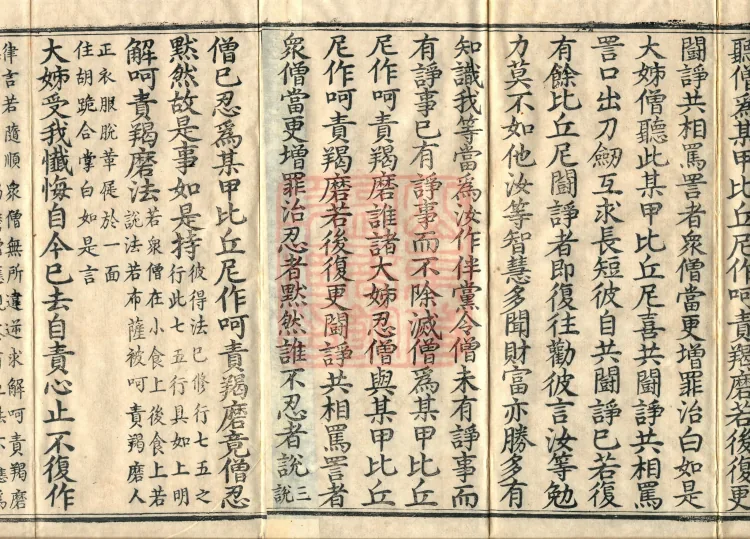 聽僧爲某甲比丘尼作呵責羯磨若後復更
鬪諍共相罵詈者衆僧當更增罪治白如是
大姊僧聽此某甲比丘尼喜共鬪諍共相罵
詈口出刀劒互求長短彼自共鬪諍已若復
有餘比丘尼鬪諍者即復往勸彼言汝等勉
力莫不如他汝等智慧多聞財富亦勝多有
知識我等當爲汝作伴黨令僧未有諍事而
有諍事已有諍事而不除滅僧爲某甲比丘
尼作呵責羯磨誰諸大姊忍僧與某甲比丘
尼作呵責羯磨若後復更鬪諍共相罵詈者
衆僧當更增罪治忍者默然誰不忍者說三說
僧已忍爲某甲比丘尼作呵責羯磨竟僧忍
默然故是事如是持彼得法已修行七五之
行此七五行具如上明
解呵責羯磨法若衆僧在小食上後食上若
說法若布薩被呵責羯磨人
正衣服脫革屣於一面
住胡跪合掌白如是言
大姊受我懺悔自今已去自責心止不復作
律言若隨順衆僧無所違逆求解呵責羯磨